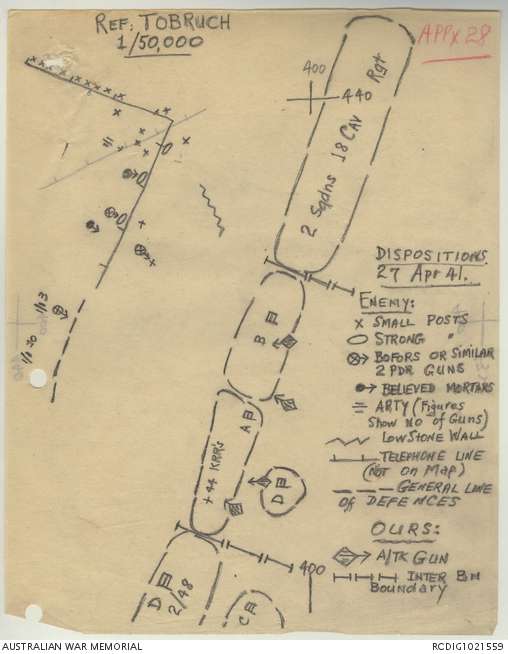 REF: TOBRUCH
1/50,000
APPX 28
400
440
2 Sqdns 18 CAV Rgt
DISPOSITIONS
27 Apr 41.
ENEMY:
x SMALL POSTS
STRONG "
BOFORS OR SIMILAR
2 PDR GUNS
BELIEVED MORTARS
ARTY (Figures
Show No of Guns)
Low STONE WALL
TELEPHONE LINE
(NOT on MAP)
GENERAL LINE
of DEFENCES
OURS:
A/TK GUN
INTER BN
Boundary
B
A
+44 KRR's
D
400
D
2/48
C
AUSTRALIAN WAR MEMORIAL
RCDIG1021559